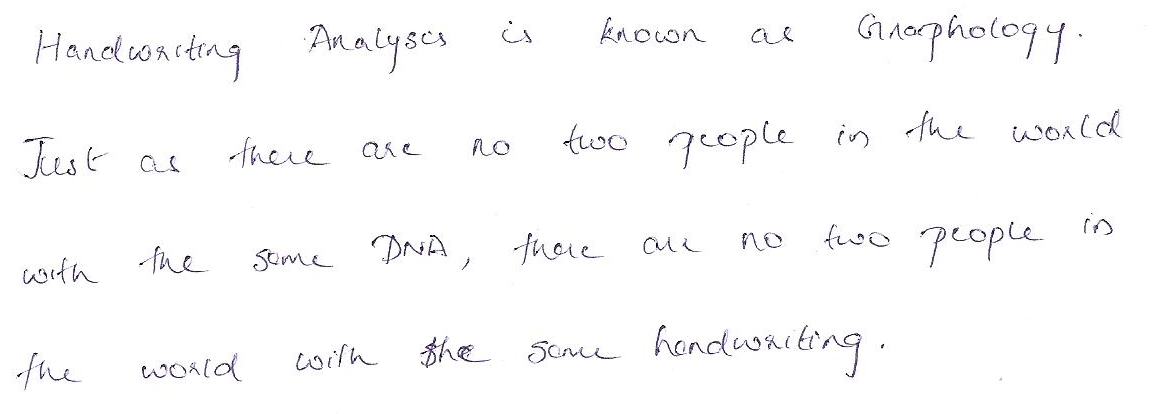 Handwriting Analysis is known as Gnarphology.
Just as there are no two people in the world
with the same DNA, there are no two people in
the world with the same handwriting.